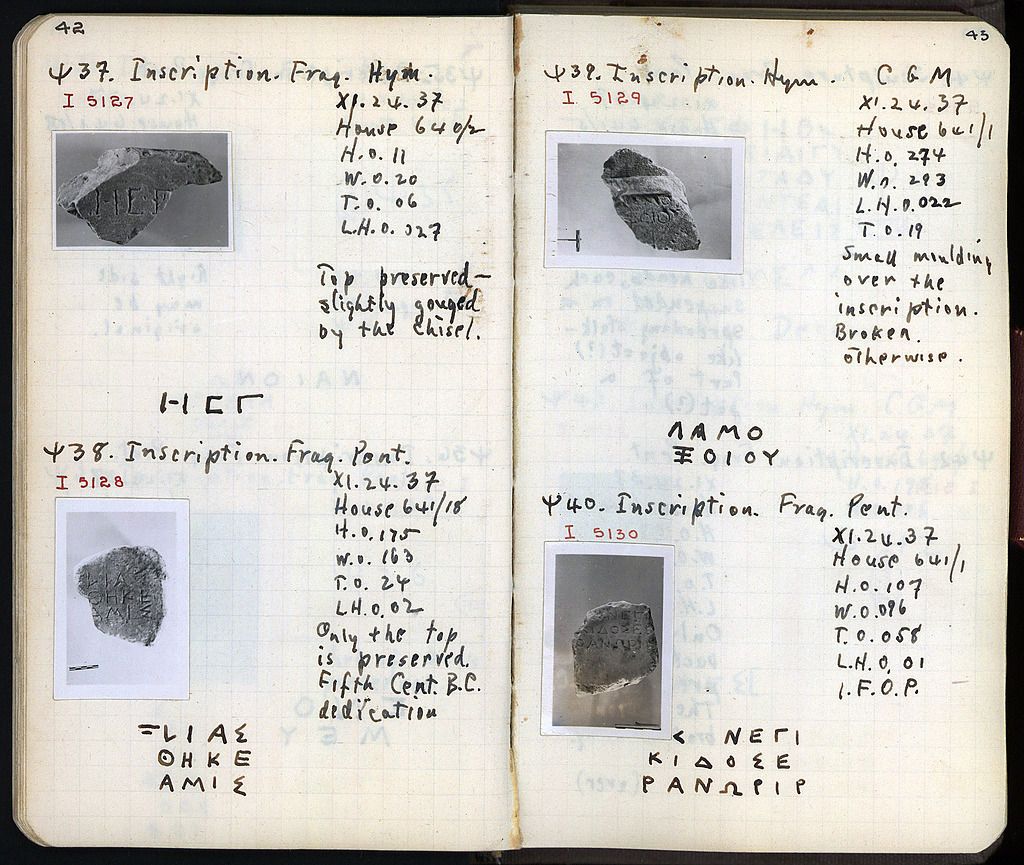 42
Ψ37. Inscription. Frag. Hym.
I 5127
XI.24.37
House 640/2
H.0.11
W.0.20
T.0.06
L.H.0.027
Top preserved –
slightly gouged
by the chisel.
Ψ38. Inscription. Frag. Pent.
I 5128
XI.24.37
House 641/18
H.0.175
W.0.163
T.0.24
L.H.0.02
Only the top
is preserved.
Fifth Cent. B.C.
dedication
ΙΑΣ
ΘΗΚΕ
ΑΜΙΣ
43
Ψ39. Inscription. Hym. C G M
I 5129
XI.24.37
House 641/1
H.0.274
W.0.293
L.H.0.022
T.0.19
Small moulding
over the
inscription.
Broken
otherwise.
ΛΑΜΟ
ΞΟΙΟΥ
Ψ40. Inscription. Frag. Pent.
I 5130
XI.24.37
House 641/1
H.0.107
W.0.096
T.0.058
L.H.0.01
I.F.O.P.
< ΝΕΓΙ
ΚΙΔΟΣΕ
ΡΑΝΩΡΙΡ